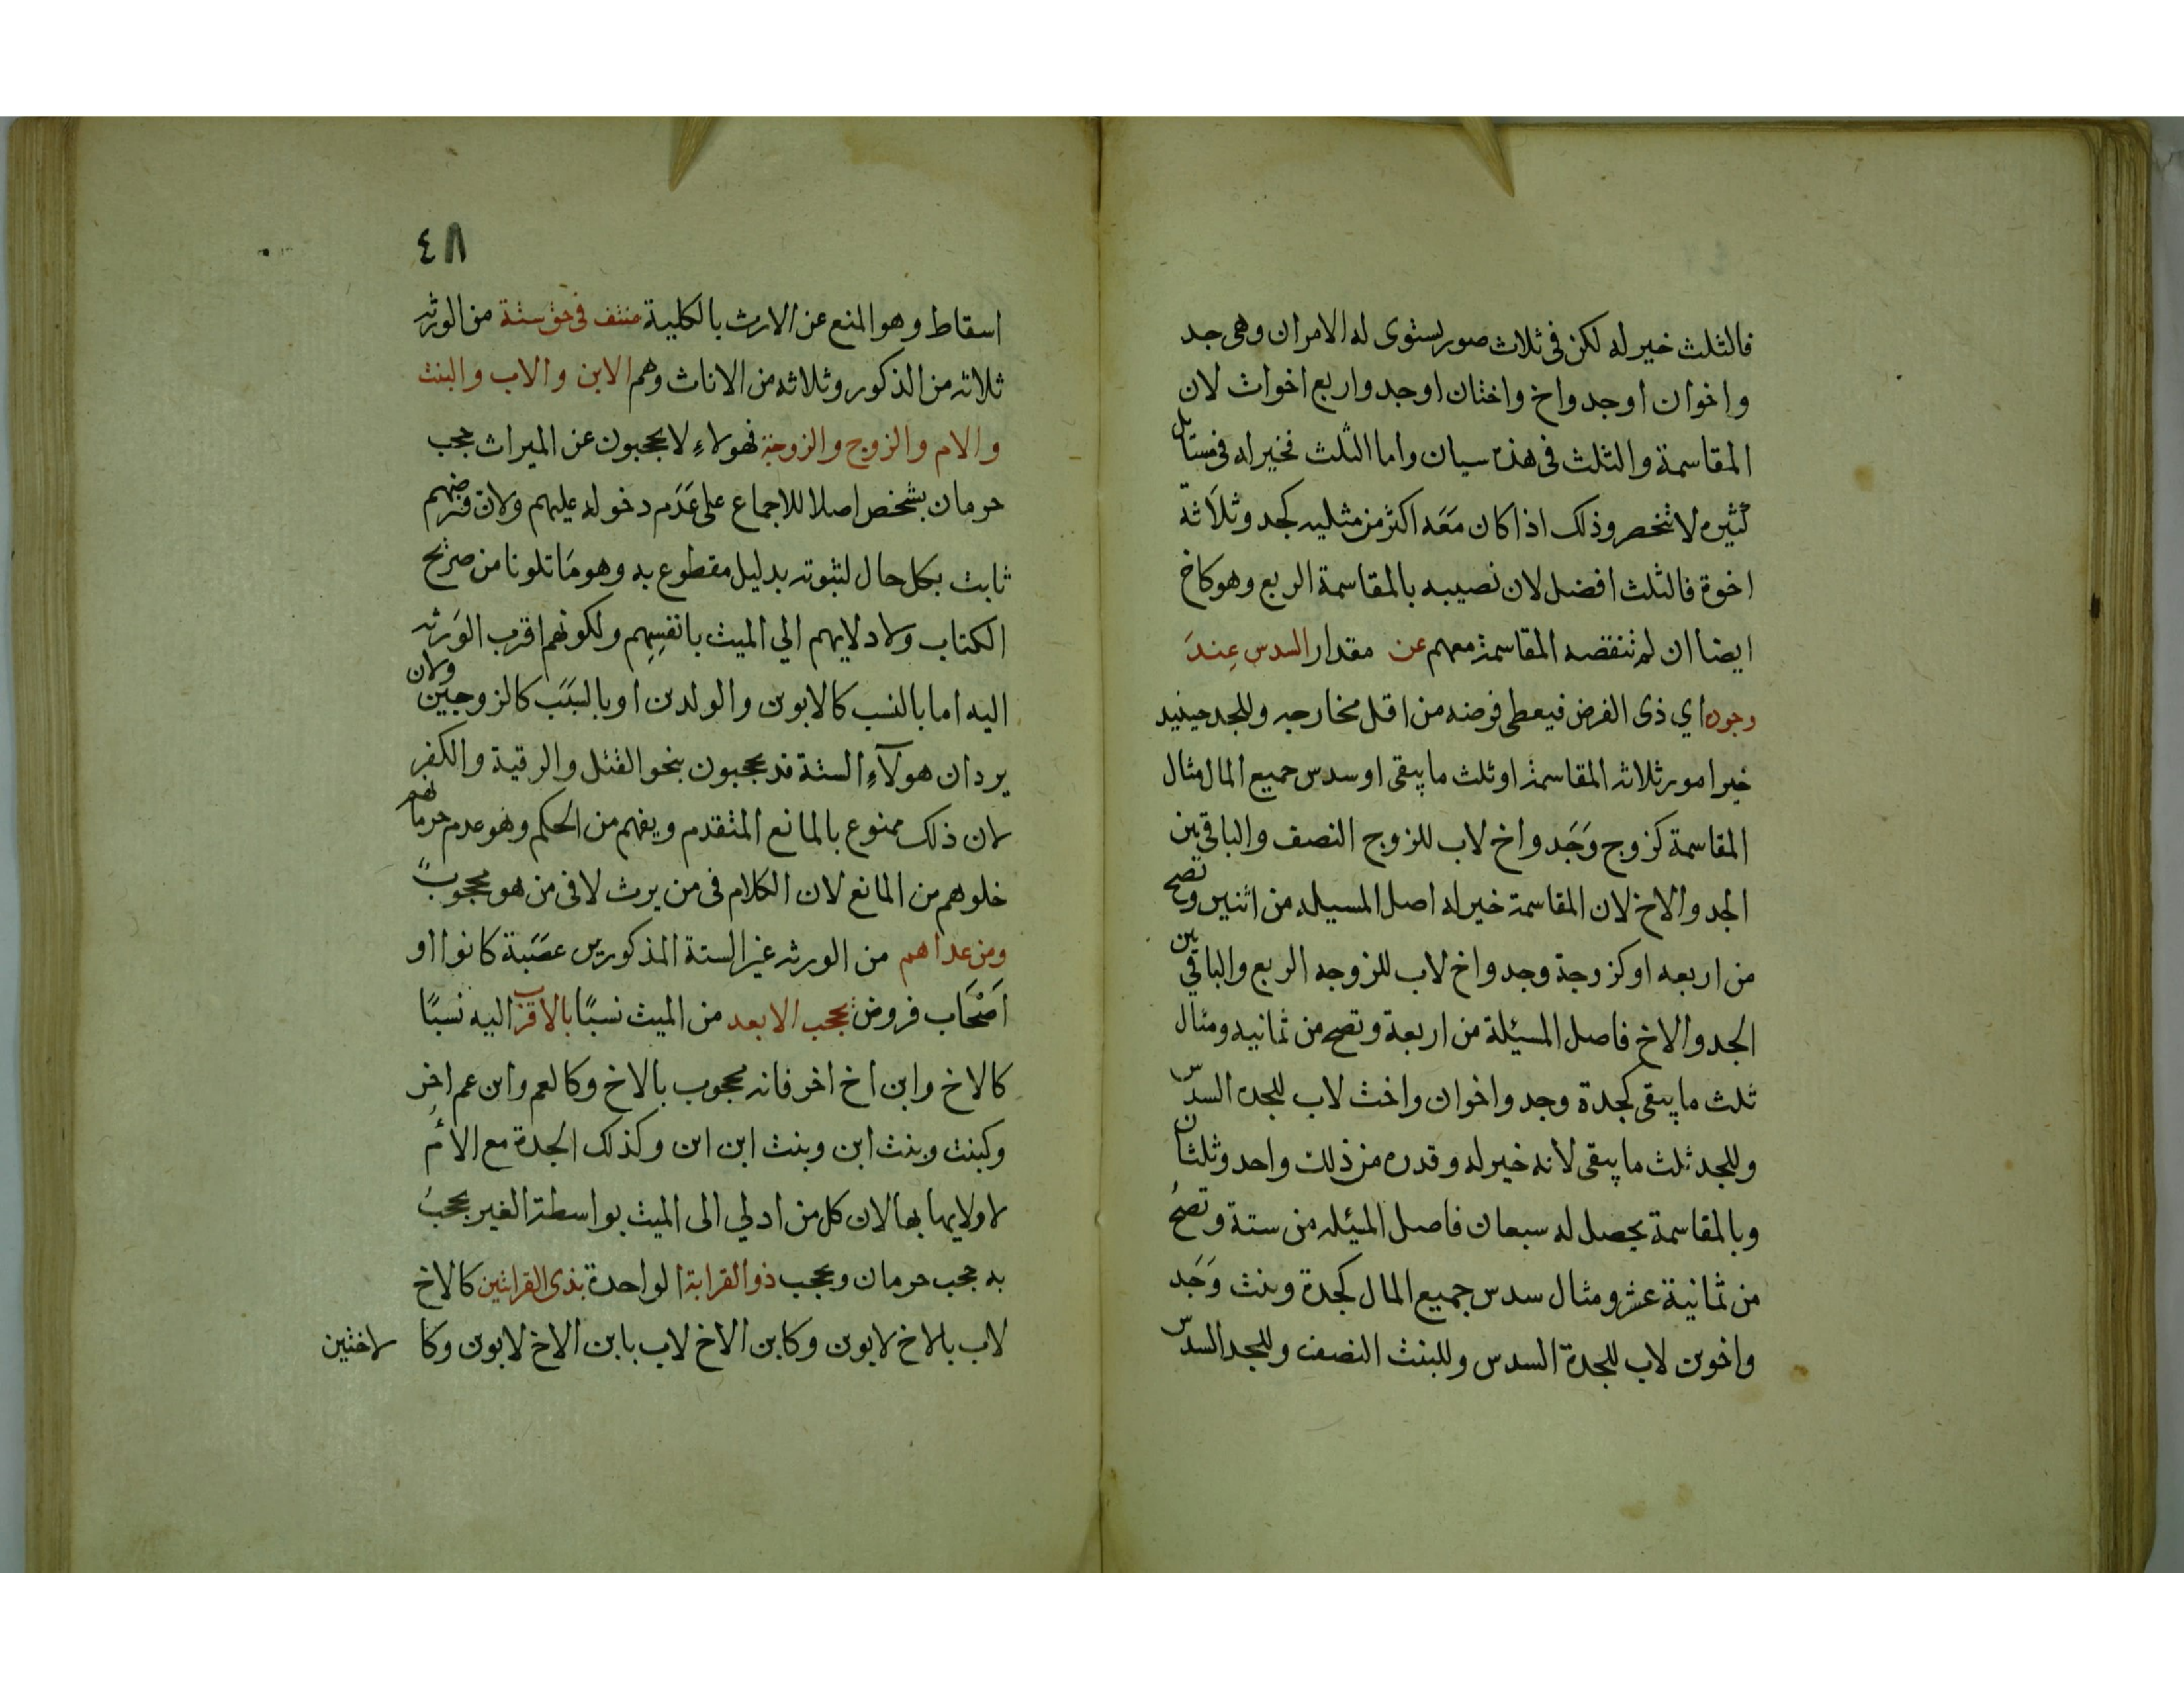 فالثلث خير له لكن في ثلاث صور يستوى له الامران وهي جد
واخوان او جد واخ واختان او جد واربع اخوات لان
المقاسمة والثلث في هذه سيان واما الثلث فخير له في مسائل
كثيره لا تنحصر وذلك اذا كان مَعَه اكثر من مثليه كجد وثلَاثة
اخوة فالثلث افضل لان نصيبه بالمقاسمة الربع وهو كاخ
ايضا ان لم تنقصه المقاسمة معهم عن مقدار السدس عِندَ
وجود اي ذى الفرض فيعطى فرضه من اقل مخارجه وللجد حينيذ
خير امور ثلاثه المقاسمة او ثلث ما يبقى او سدس جميع المال مثال
المقاسمة كزوج وَجَد واخ لاب للزوج النصف والباقي بين
الجد والاخ لان المقاسمة خير له اصل المسيله من اثنين وتصح
من اربعه او كزوجة وجد واخ لاب للزوجه الربع والباقي بين
الجد والاخ فاصل المسيئلة من اربعة وتصح من ثمانيه ومثال
ثلث ما يبقى كجدة وجد واخوان واخت لاب للجده السدس
وللجد ثلث ما يبقى لانه خير له وقدره من ذلك واحد وثلثان
وبالمقاسمة يحصل له سبعان فاصل المسئله من ستة وتصحُ
من ثمانية عشر ومثال سدس جميع المال كجدة وبنت وَجَد
واخوين لاب للجدة السدس وللبنت النصف وللجد السدس
٤٨
اسقاط وهو المنع عن الارث بالكلية منتف في حق ستة من الورثه
ثلاثه من الذكور وثلاثه من الاناث وهم الابن والاب والبنت
والام والزوج والزوجة فهولاءِ لا يحجبون عن الميراث حجب
حرمان بشخص اصلا للاجماع على عَدَم دخوله عليهم ولان فرضهم
ثابت بكل حال لثبوته بدليل مقطوع به وهو مَا تلونا من صريح
الكتاب ولادلايهم الي الميت بانفسِهِم ولكونهم اقرب الوَرثه
اليه اما بالنسب كالابوين والولدين او بالسَبَب كالزوجين ولان
يرد ان هولآءِ الستة قد يحجبون بنحو القتل والرقية والكفر
لان ذلك ممنوع بالمانع المتقدم ويفهم من الحكم وهو عدم حرمانهم
خلوهم من المانع لان الكلام في من يرث لا في من هو محجوبٌ
ومن عداهم من الورثه غير الستة المذكورين عصَبة كانوا او
اَصْحَاب فروض يحجب الابعد من الميت نسبًا بالاقرب اليه نسبًا
كالاخ وابن اخ اخر فانه محجوب بالاخ وكالعم وابن عم اخر
وكبنت وبنت ابن وبنت ابن ابن وكذلك الجدة مع الامُ
لاولايها بها لان كل من ادلي الى الميت بواسطة الغير يحجبُ
به حجب حرمان ويحجب ذو القرابة الواحدة بذى القرابتين كالاخ
لاب بالاخ لابوين وكابن الاخ لاب بابن الاخ لابوين وكا لاختين